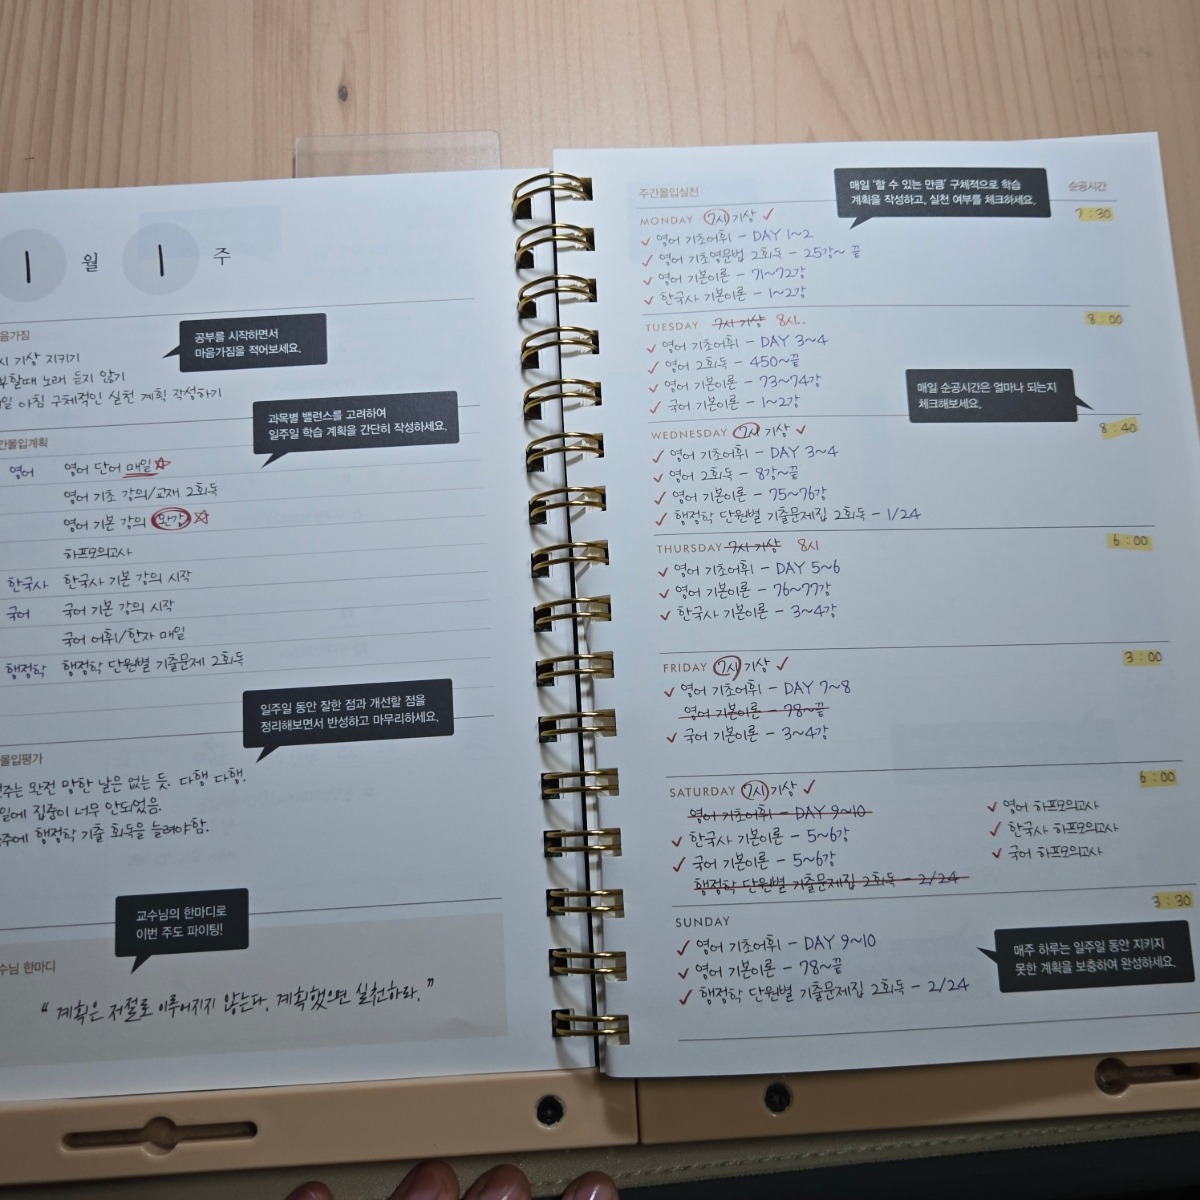 1 월 1 주
음가짐
공부를 시작하면서
마음가짐을 적어보세요.
시 기상 지키기
부할때 노래 듣지 않기
일 아침 구체적인 실천 계획 작성하기
과목별 밸런스를 고려하여
일주일 학습 계획을 간단히 작성하세요.
간몰입계획
영어 영어 단어 매일☆
영어 기초 강의/교재 2회독
영어 기본 강의 완강 ☆
하프모의고사
한국사 한국사 기본 강의 시작
국어 국어 기본 강의 시작
국어 어휘/한자 매일
행정학 행정학 단원별 기출문제 2회독
일주일 동안 잘한 점과 개선할 점을
정리해보면서 반성하고 마무리하세요.
몰입평가
주는 완전 망한 날은 없는 듯. 다행 다행.
일에 집중이 너무 안되었음.
주에 행정학 기출 회독을 늘려야함.
교수님의 한마디로
이번 주도 파이팅!
수님 한마디
“계획은 저절로 이루어지지 않는다. 계획했으면 실천하라.”
주간몰입실천
매일 ‘할 수 있는 만큼’ 구체적으로 학습
계획을 작성하고, 실천 여부를 체크하세요.
순공시간
MONDAY 7시 기상 ✓ 7:30
✓ 영어 기초어휘 - DAY 1~2
✓ 영어 기초영문법 2회독 - 25강~끝
✓ 영어 기본이론 - 71~72강
✓ 한국사 기본이론 - 1~2강
TUESDAY 7시 기상 8시.. 8:00
✓ 영어 기초어휘 - DAY 3~4
✓ 영어 2회독 - 450~끝
✓ 영어 기본이론 - 73~74강
✓ 국어 기본이론 - 1~2강
매일 순공시간은 얼마나 되는지
체크해보세요.
WEDNESDAY 7시 기상 ✓ 8:40
✓ 영어 기초어휘 - DAY 3~4
✓ 영어 2회독 - 8강~끝
✓ 영어 기본이론 - 75~76강
✓ 행정학 단원별 기출문제집 2회독 - 1/24
THURSDAY 7시 기상 8시 6:00
✓ 영어 기초어휘 - DAY 5~6
✓ 영어 기본이론 - 76~77강
✓ 한국사 기본이론 - 3~4강
FRIDAY 7시 기상 ✓ 3:00
✓ 영어 기초어휘 - DAY 7~8
영어 기본이론 - 78~끝
✓ 국어 기본이론 - 3~4강
SATURDAY 7시 기상 ✓ 6:00
영어 기초어휘 - DAY 9~10
✓ 한국사 기본이론 - 5~6강
✓ 국어 기본이론 - 5~6강
행정학 단원별 기출문제집 2회독 - 2/24
✓ 영어 하프모의고사
✓ 한국사 하프모의고사
✓ 국어 하프모의고사
SUNDAY 3:30
✓ 영어 기초어휘 - DAY 9~10
✓ 영어 기본이론 - 78~끝
✓ 행정학 단원별 기출문제집 2회독 - 2/24
매주 하루는 일주일 동안 지키지
못한 계획을 보충하여 완성하세요.